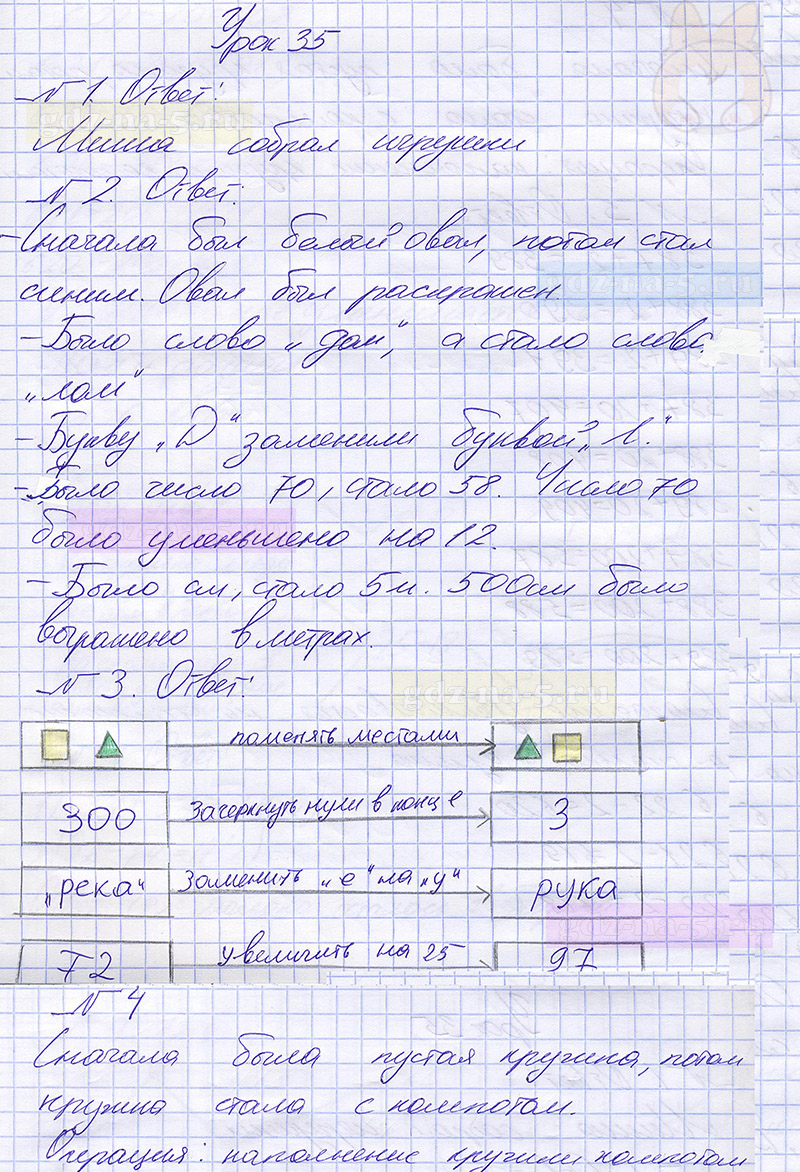 Урок 35
№ 1. Ответ:
Миша собрал игрушки
№ 2. Ответ:
- Сначала был белый овал, потом стал
синим. Овал был раскрашен.
- Было слово „дом“, а стало слово
„лом“
- Букву „D“ заменили буквой „л.“
- Было число 70, стало 58. Число 70
было уменьшено на 12.
- Было см, стало 5м. 500см было
выражено в метрах.
№ 3. Ответ:
поменять местами
300 Зачеркнуть нули в конце 3
„река“ Заменить „е“ на „у“ рука
72 увеличить на 25 97
№ 4
Сначала была пустая кружка, потом
кружка стала с компотом.
Операция: наполнение кружки компотом
gdz-na-5.ru